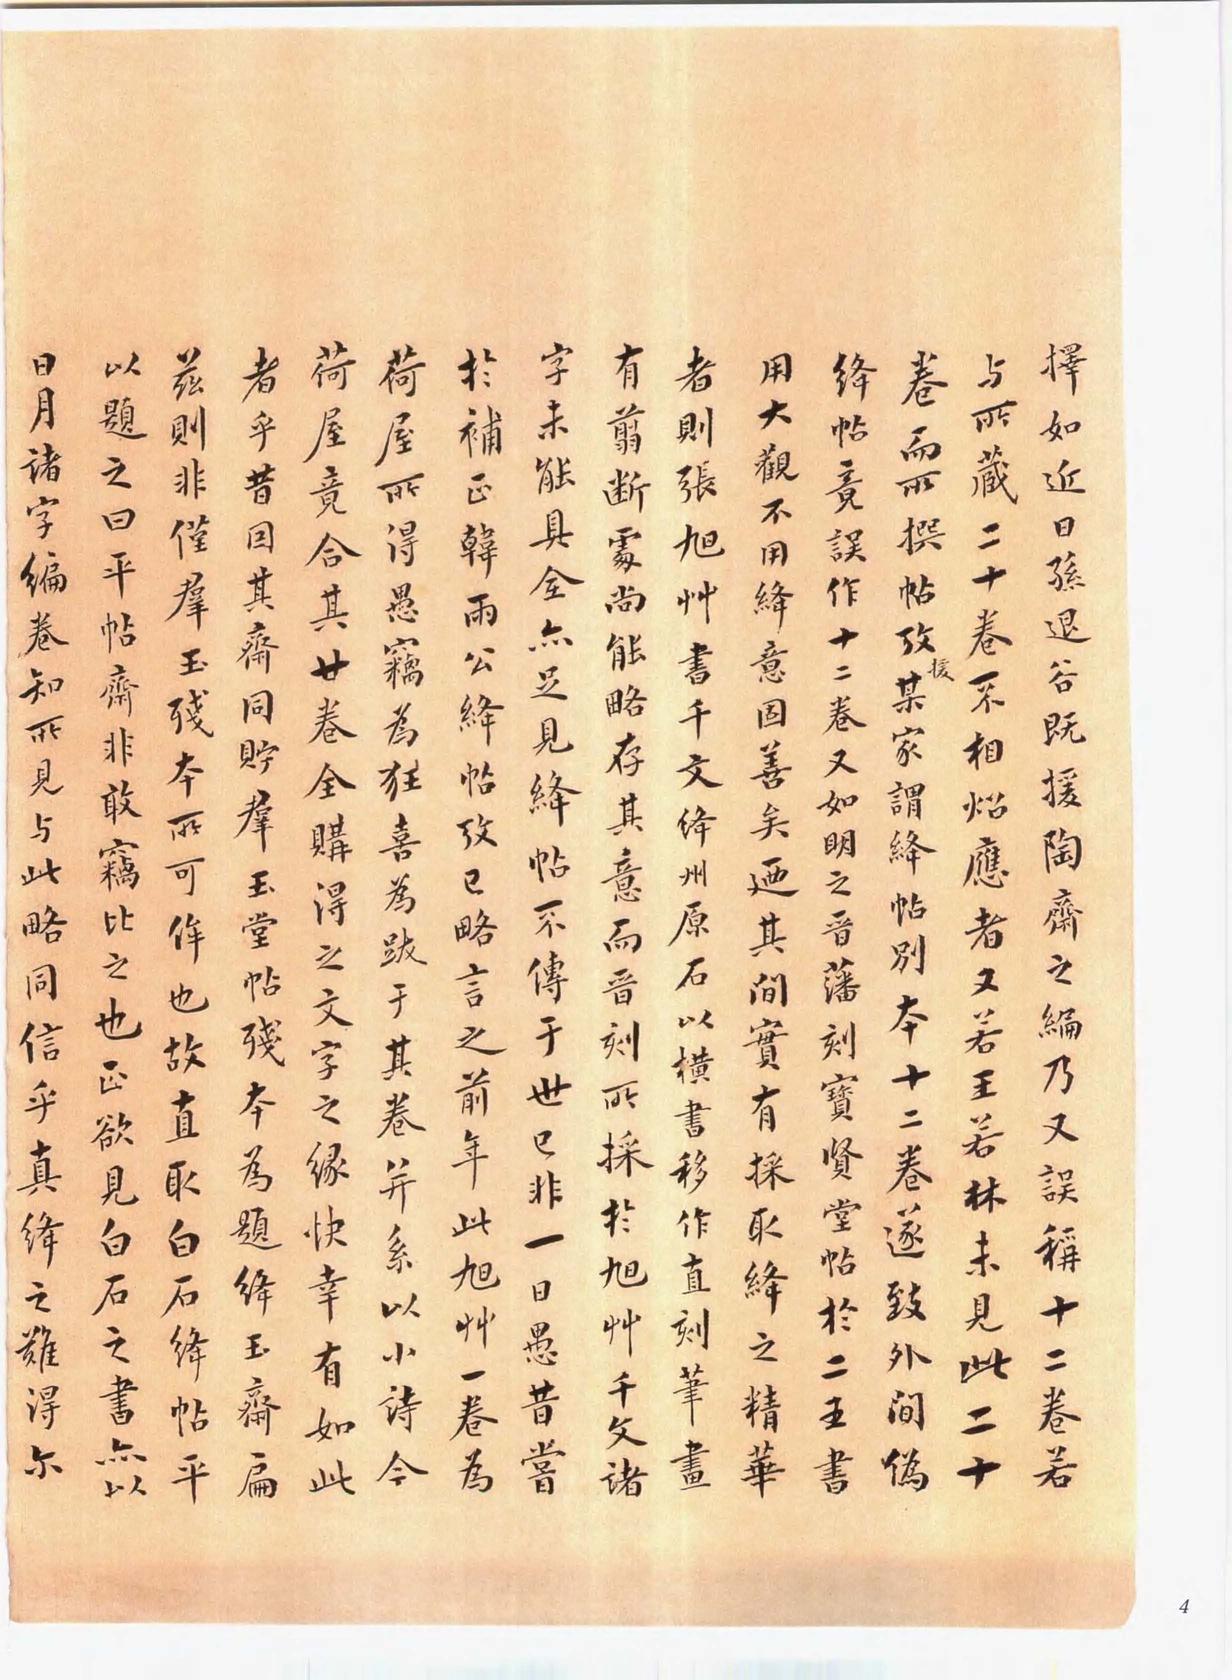 擇如近日孫退谷既援陶齋之編乃又誤稱十二卷若
与所藏二十卷不相炤應者又若王若林未見此二十
卷而所撰帖攷援某家謂絳帖別本十二卷遂致外間偽
絳帖竟誤作十二卷又如明之晉藩刻寶賢堂帖於二王書
用大觀不用絳意固善矣迺其間實有採取絳之精華
者則張旭艸書千文絳州原石以橫書移作直刻筆畫
有翦断處尚能略存其意而晉刻所採於旭艸千文諸
字未能具全亦足見絳帖不傳于世已非一日愚昔嘗
於補正韓雨公絳帖攷已略言之前年此旭艸一卷為
荷屋所得愚竊為狂喜為跋于其卷并系以小詩今
荷屋竟合其廿卷全購得之文字之緣快幸有如此
者乎昔因其齋同貯羣玉堂帖殘本為題絳玉齋扁
茲則非僅羣玉殘本所可侔也故直取白石絳帖平
以題之曰平帖齋非敢竊比之也正欲見白石之書亦以
日月諸字編卷知所見与此略同信乎真絳之難得尓
4